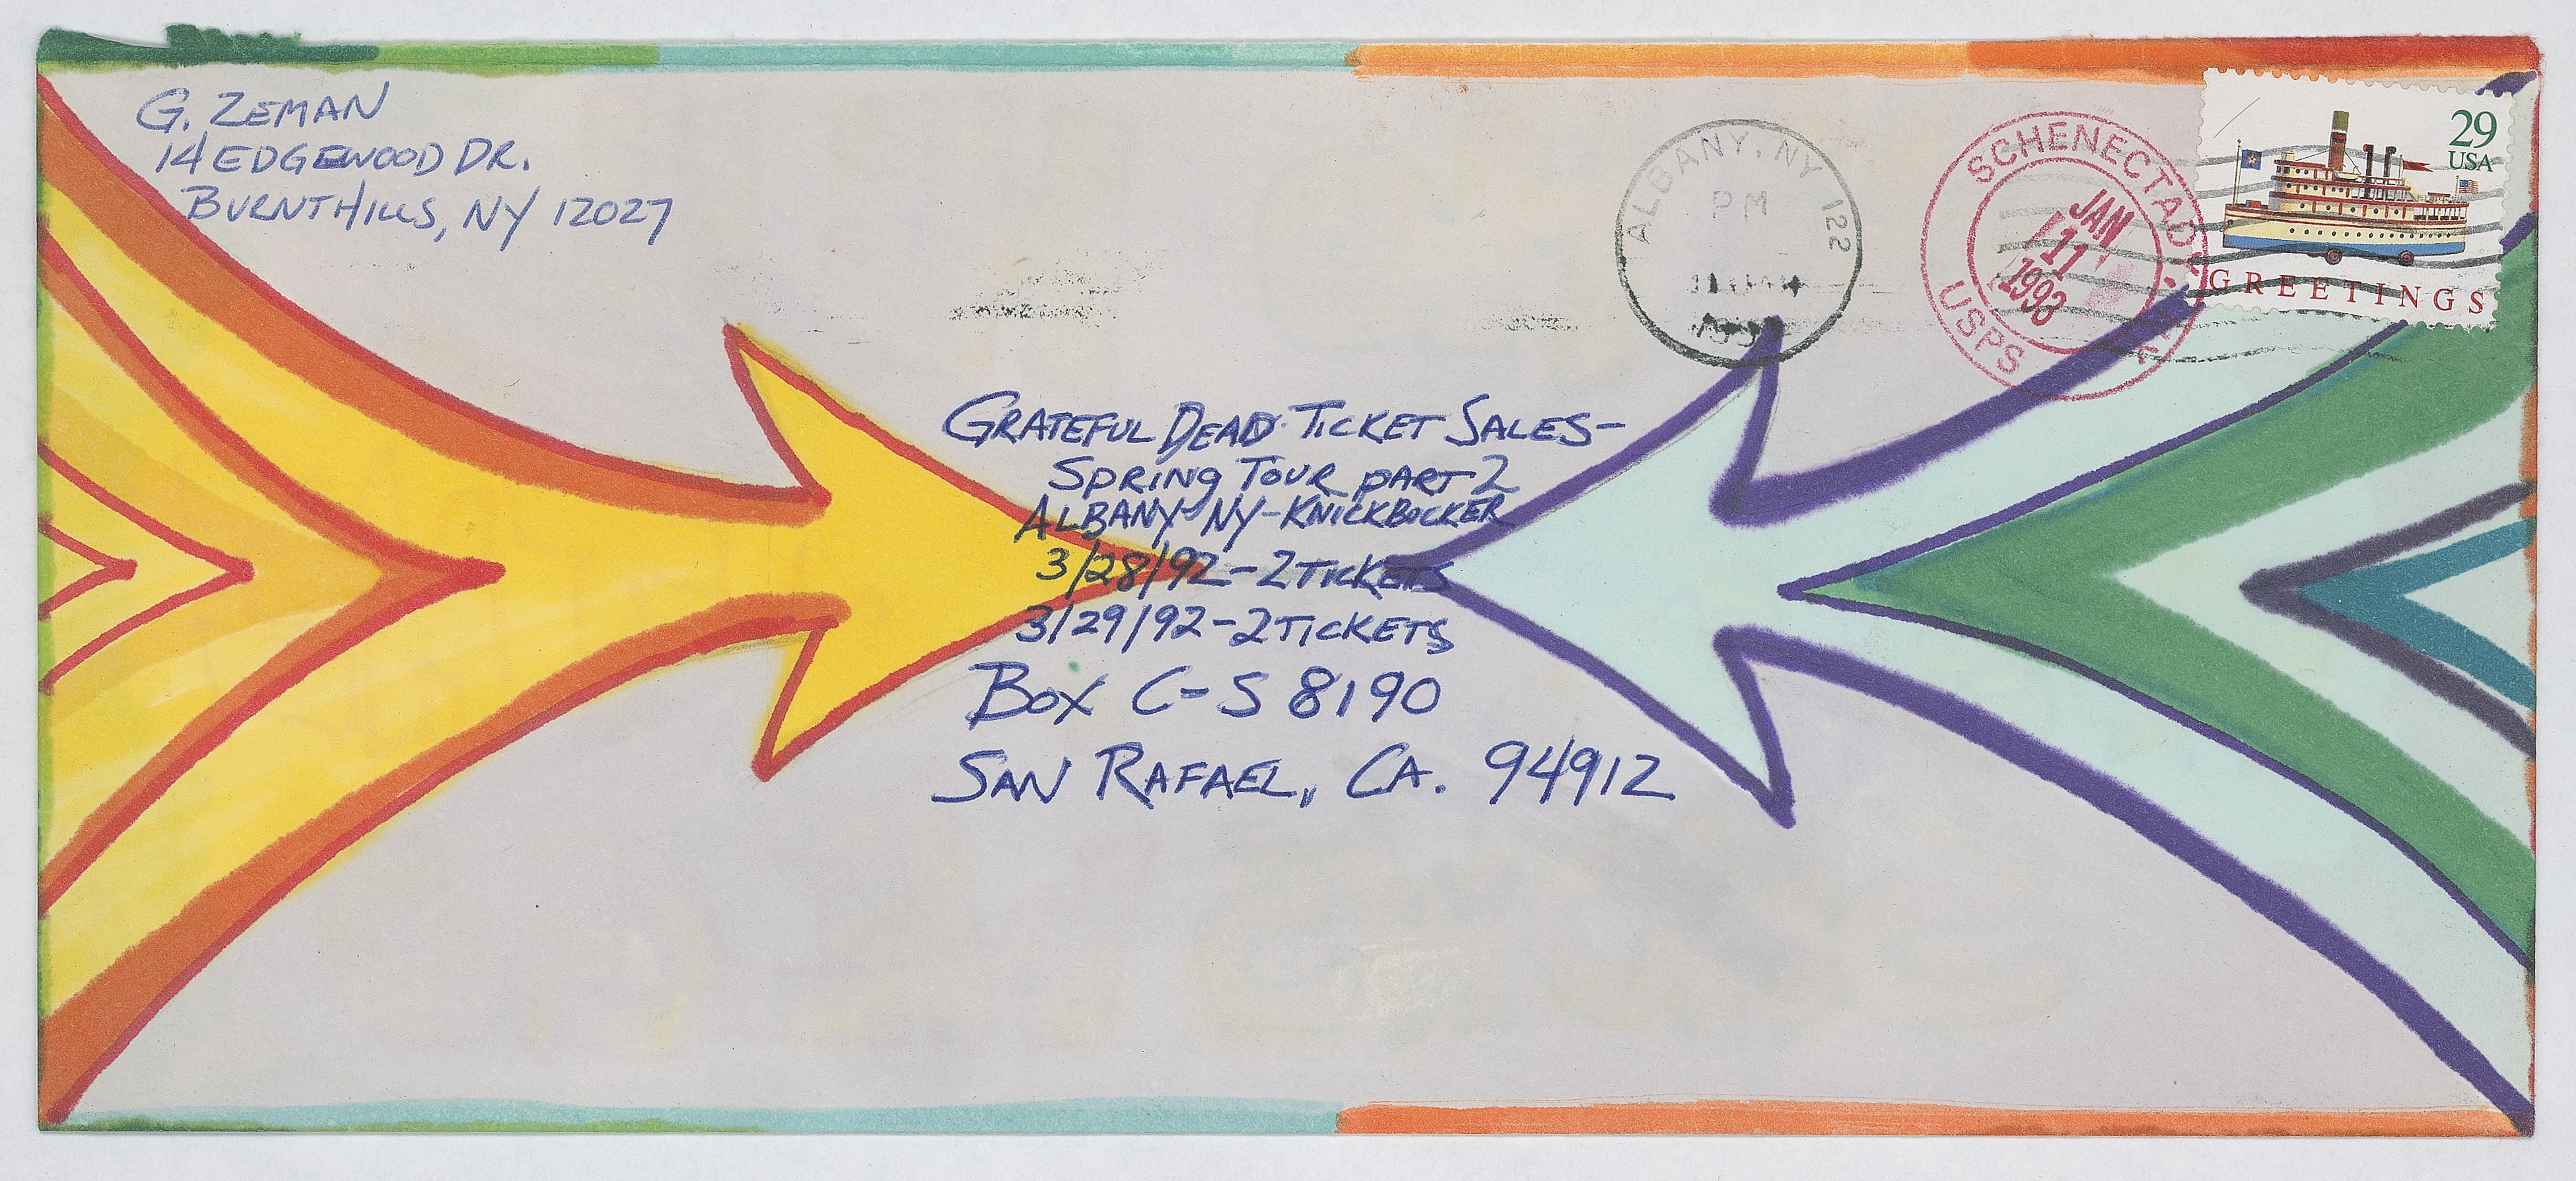 G. ZEMAN
14 EDGEWOOD DR.
BURNT HILLS, NY 12027
ALBANY, NY 122
PM
SCHENECTADY
JAN
11
1993
USPS
29
USA
GREETINGS
GRATEFUL DEAD TICKET SALES-
SPRING TOUR PART 2
ALBANY-NY-KNICKBOCKER
3/28/92-2 TICKETS
3/29/92-2 TICKETS
BOX C-S 8190
SAN RAFAEL, CA. 94912